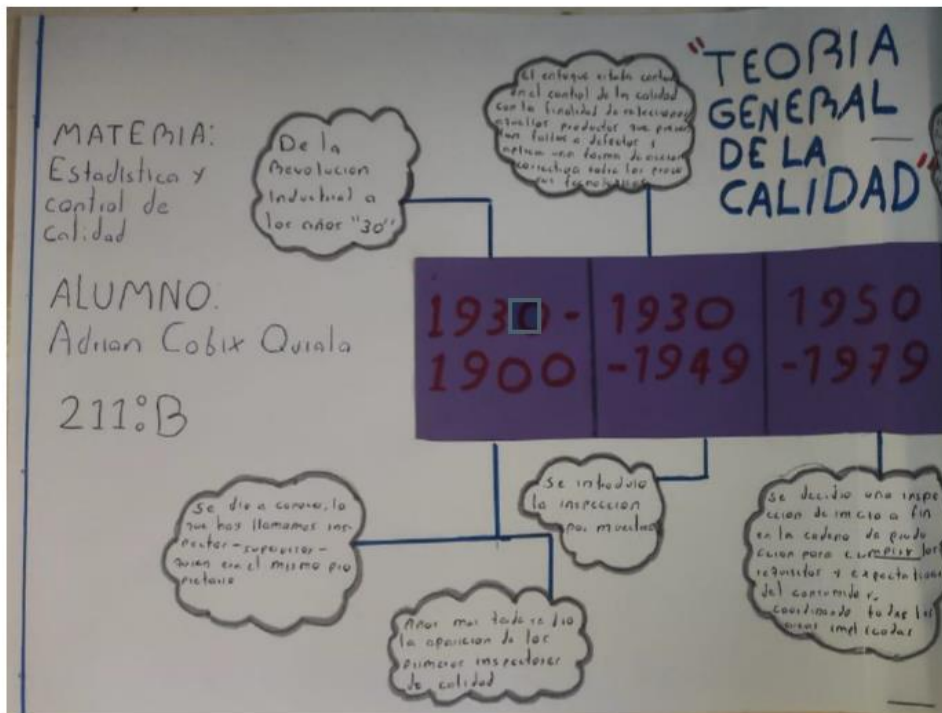 "TEORIA
GENERAL
DE LA
CALIDAD"
MATERIA:
Estadistica y
control de
calidad
ALUMNO:
Adrian Cobix Quiala
211°B
De la
Revolucion
Industrial a
los años "30"
El enfoque estada
en el control de la calidad
con la finalidad de
aquellos productos que
fallas o defectos y
aplicar una forma de accion
correctiva sobre los
1930-
1900
1930
-1949
1950
-1979
Se dio a conocer, lo
que hoy llamamos ins-
pector-supervisor-
quien era el mismo pro
pietario
Años mas tarde se dio
la aparicion de los
primeros inspectores
de calidad
Se introdujo
la inspeccion
por muestreo
Se decidio una inspe
ccion de inicio a fin
en la cadena de produ
ccion para cumplir los
requisitos y expectativas
del consumidor,
coordinando todas las
areas implicadas